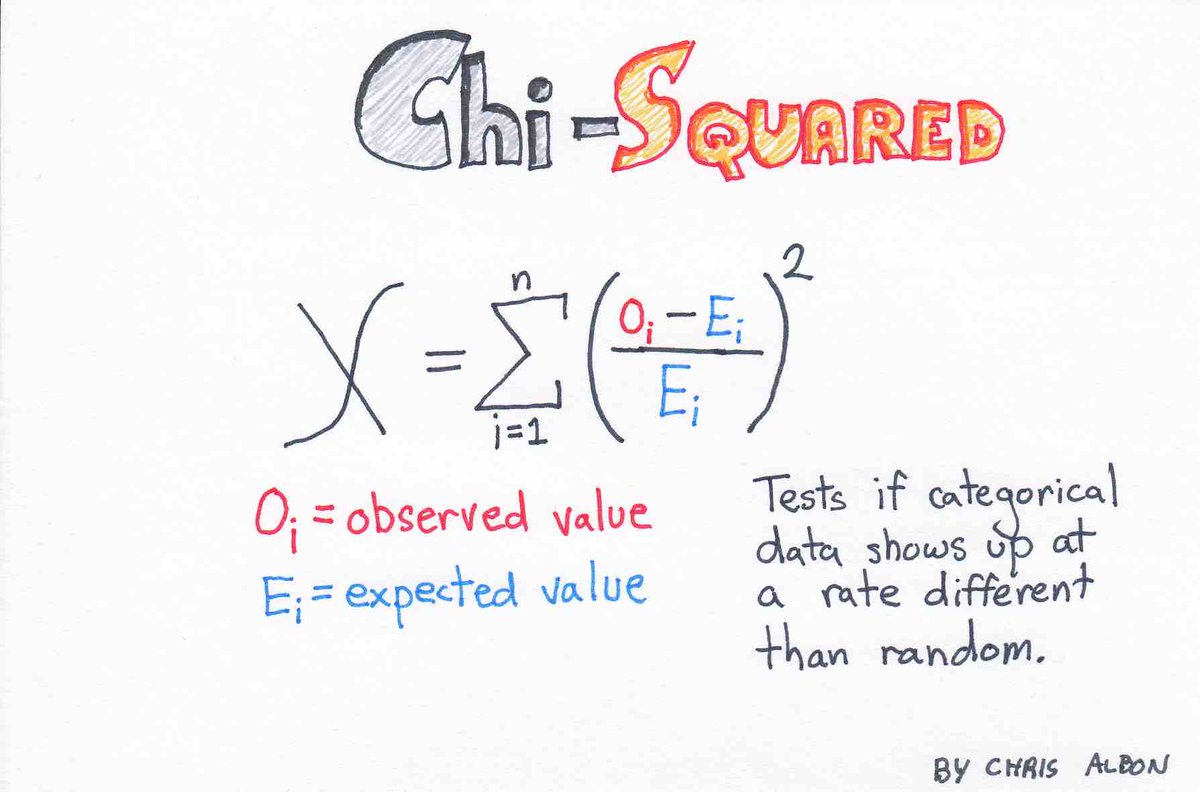 Chi-SQUARED
χ = n∑i=1 (Oi − Ei / Ei)²
Oi = observed value
Ei = expected value
Tests if categorical
data shows up at
a rate different
than random.
BY CHRIS ALBON